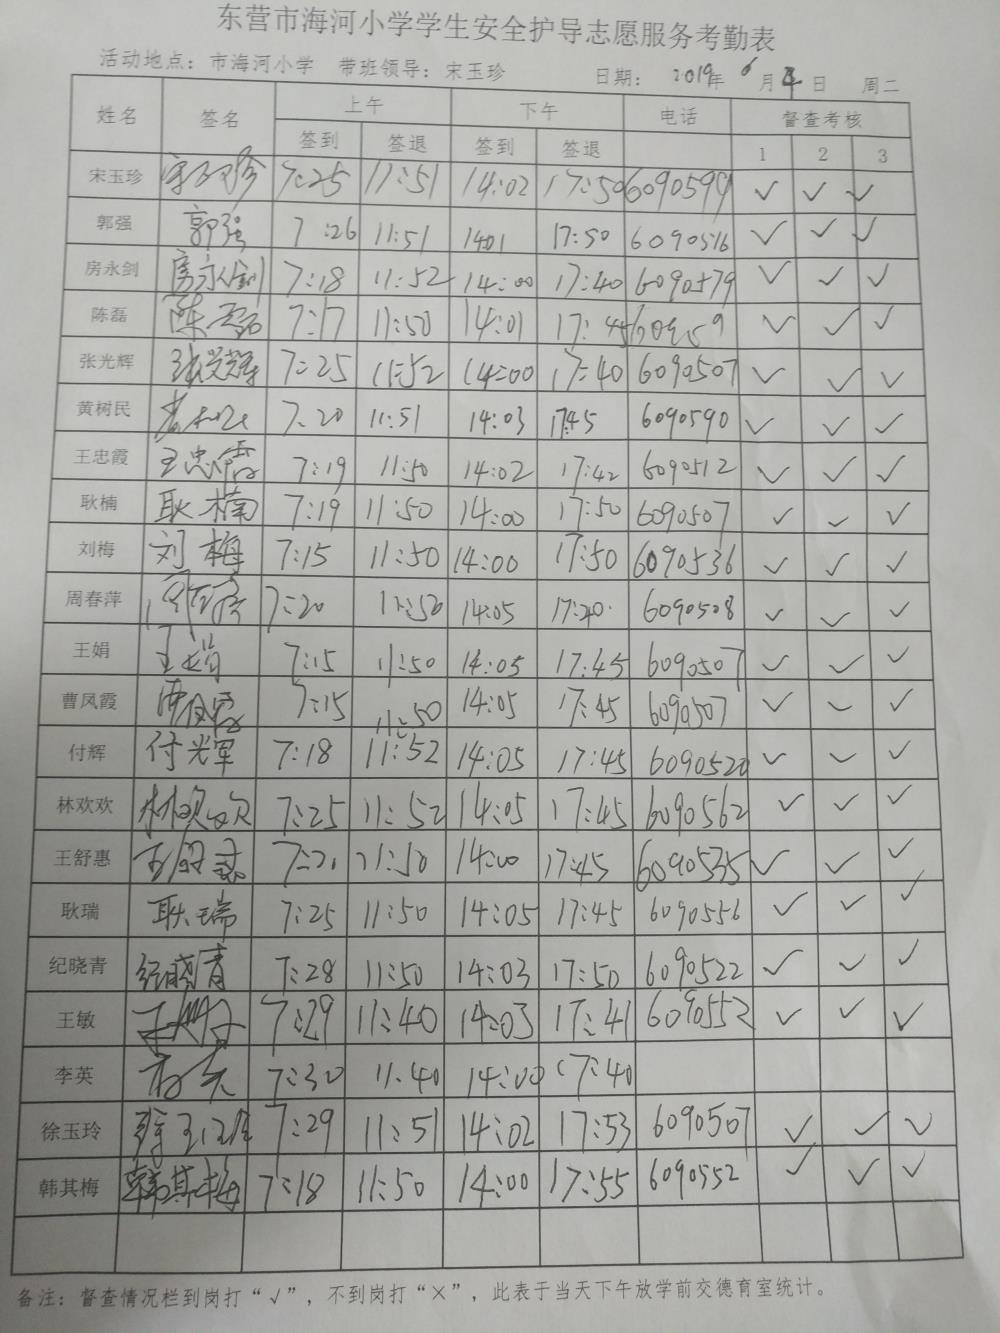 东营市海河小学学生安全护导志愿服务考勤表
活动地点：市海河小学 带班领导：宋玉珍 日期：2019年6月4日 周二
姓名 签名 上午 下午 电话 督查考核
签到 签退 签到 签退 1 2 3
宋玉珍 宋玉珍 7:25 11:51 14:02 17:50 6090599 ✓ ✓ ✓
郭强 郭强 7:26 11:51 1401 17:50 6090516 ✓ ✓ ✓
房永剑 房永剑 7:18 11:52 14:00 17:40 6090579 ✓ ✓ ✓
陈磊 陈磊 7:17 11:50 14:01 17:45 ✓ ✓ ✓
张光辉 张光辉 7:25 11:52 14:00 17:40 6090507 ✓ ✓ ✓
黄树民 7:20 11:51 14:03 17:45 6090590 ✓ ✓ ✓
王忠霞 王忠霞 7:19 11:50 14:02 17:42 6090512 ✓ ✓ ✓
耿楠 耿楠 7:19 11:50 14:00 17:50 6090507 ✓ ✓ ✓
刘梅 刘梅 7:15 11:50 14:00 17:50 6090536 ✓ ✓ ✓
周春萍 7:20 11:50 14:05 17:20 6090508 ✓ ✓ ✓
王娟 王娟 7:15 11:50 14:05 17:45 6090507 ✓ ✓ ✓
曹凤霞 曹凤霞 7:15 11:50 14:05 17:45 6090507 ✓ ✓ ✓
付辉 付光军 7:18 11:52 14:05 17:45 6090520 ✓ ✓ ✓
林欢欢 林欢欢 7:25 11:52 14:05 17:45 6090562 ✓ ✓ ✓
王舒惠 王舒惠 14:00 17:45 6090535 ✓ ✓ ✓
耿瑞 耿瑞 7:25 11:50 14:05 17:45 6090556 ✓ ✓ ✓
纪晓青 纪晓青 7:28 11:50 14:03 17:50 6090522 ✓ ✓ ✓
王敏 7:29 11:40 14:03 17:41 6090552 ✓ ✓ ✓
李英 7:30 11:40 14:00 17:40
徐玉玲 徐玉玲 7:29 11:51 14:02 17:53 6090507 ✓ ✓ ✓
韩其梅 韩其梅 7:18 11:50 14:00 17:55 6090552 ✓ ✓ ✓
备注：督查情况栏到岗打“√”，不到岗打“×”，此表于当天下午放学前交德育室统计。